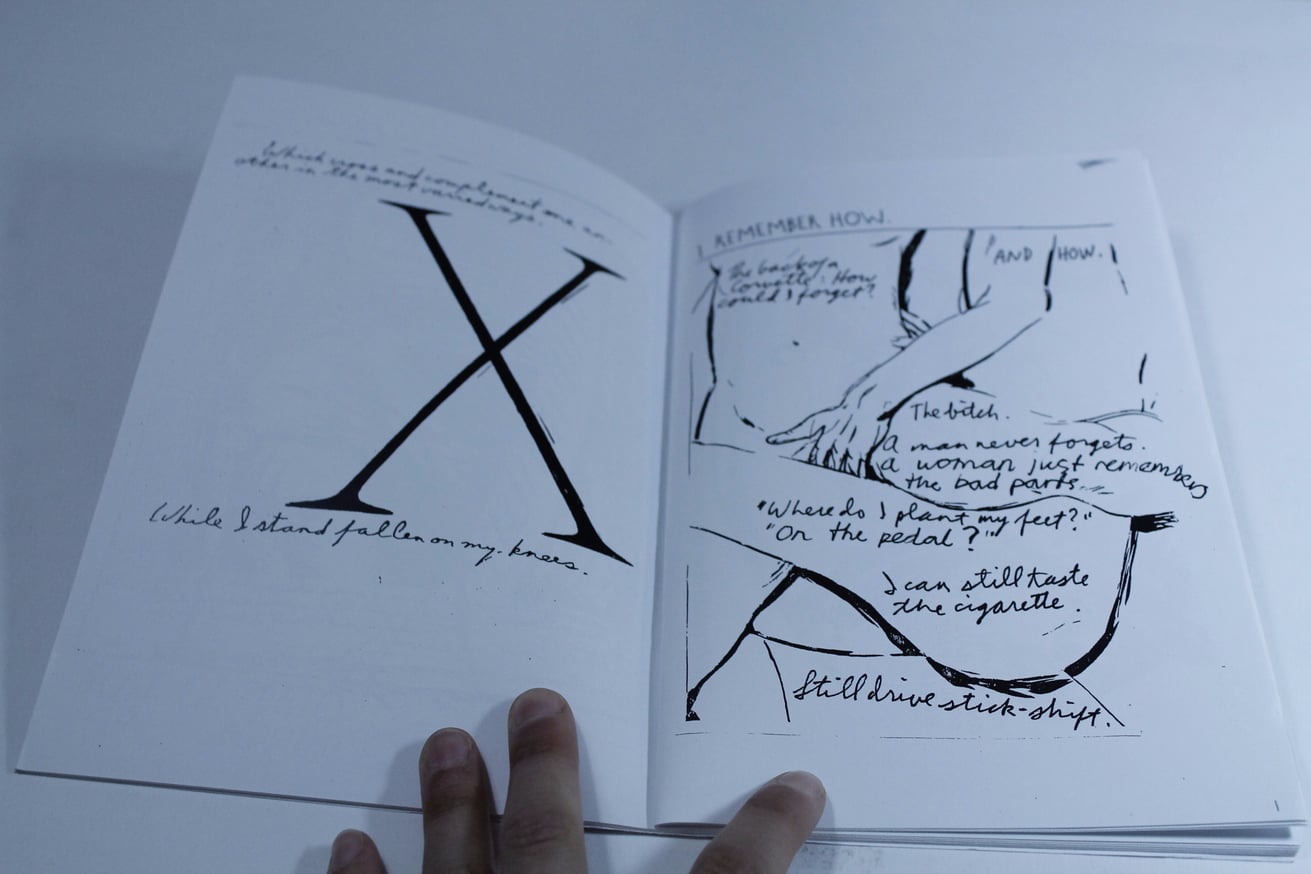 Which cross and complement one an-
other in the most varied ways.
X
While I stand fallen on my knees.
I REMEMBER HOW.
"AND HOW."
The back of a
Corvette: How
could I forget?
The bitch.
A man never forgets.
A woman just remembers
the bad parts.
"Where do I plant my feet?"
"On the pedal?"
I can still taste
the cigarette.
Still drive stick-shift.
1